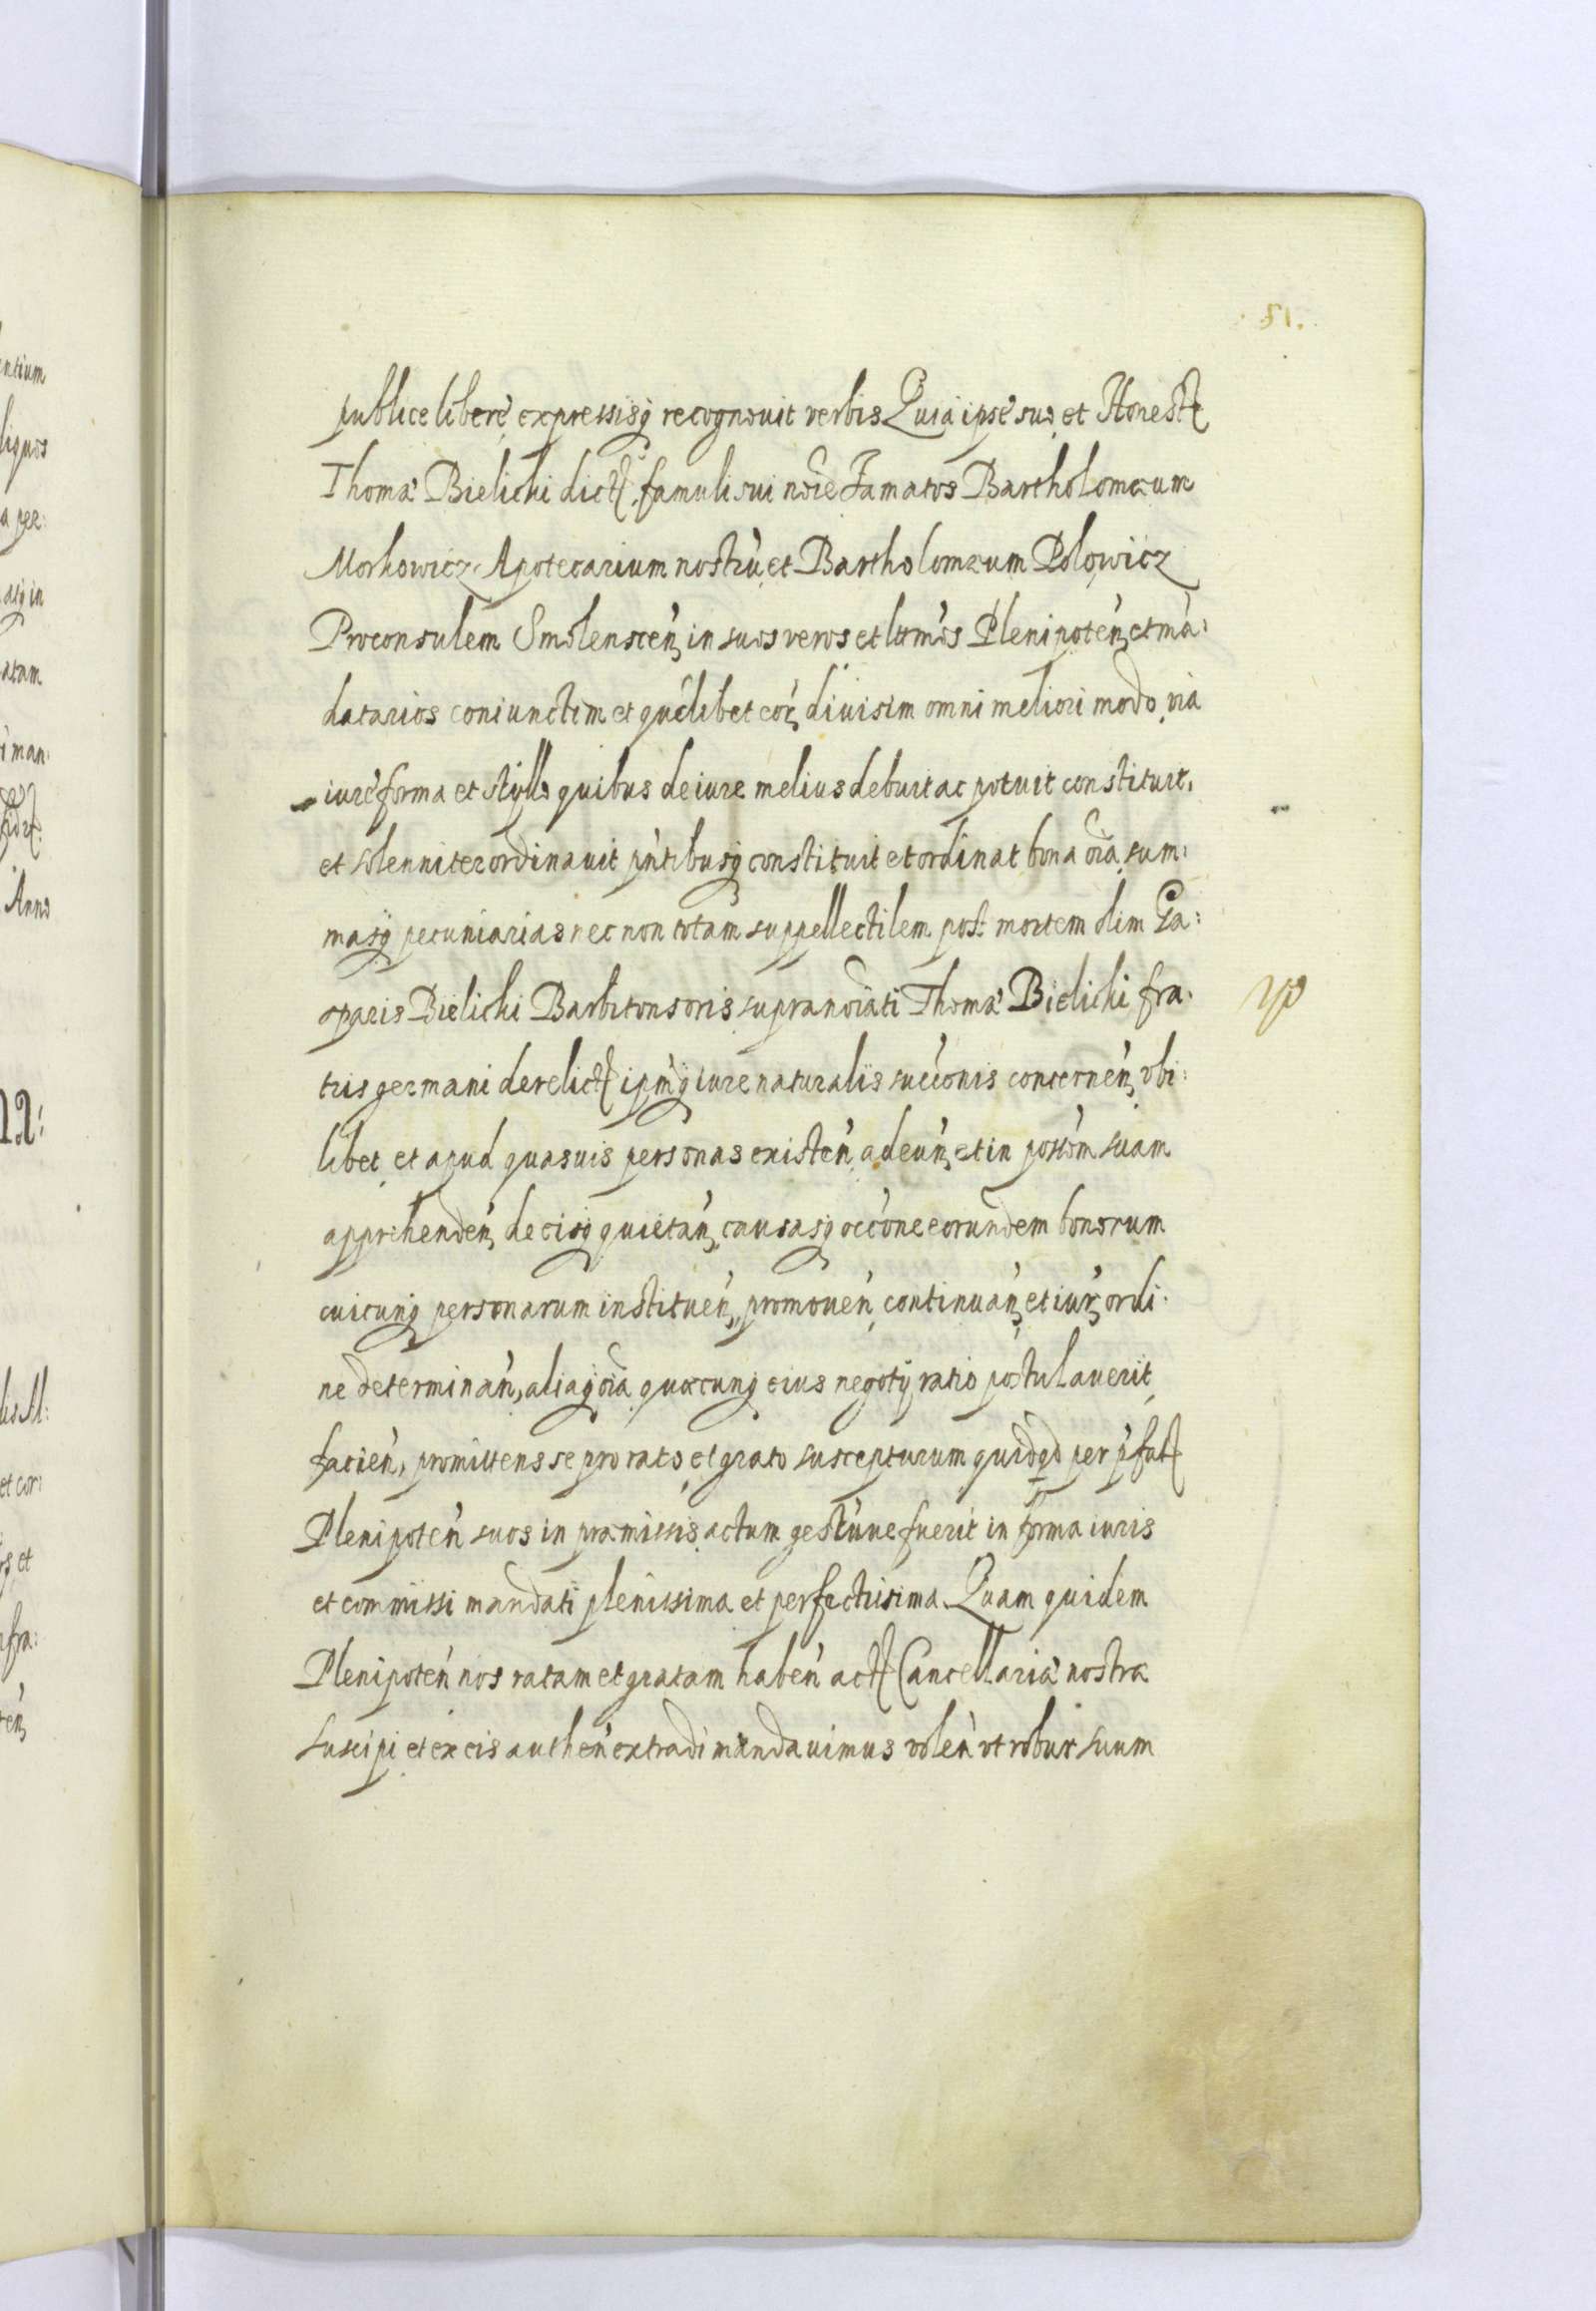 51.
publice liberè expressisq recognouit verbis Quia ipse suo et Honest
Thomæ Bielichi dict famuli sui noie Famatos Bartholomæum
Morkowicz Apotecarium nostrū et Bartholomæum Polowicz
Proconsulem Smolenscen in suos veros et lttmos Plenipoten et mā:
datarios coniunctim et quēlibet eor diuisim omni meliori modo, via
iure forma et stÿllo quibus de iure melius debuit ac potuit constituit,
et solenniter ordinauit pntibusq constituit et ordinat bona oīa sum:
masq pecuniarias nec non totam suppellectilem post mortem olim Ga:
sparis Bielichi Barbitonsoris supranoiati Thomæ Bielichi fra:
tris germani derelict ipmq iure naturalis succōnis concernen vbi:
libet et apud quasuis personas existen adeun et in possom suam
apprehenden de eisq quietan causasq occone eorundem bonorum
cuicunq personarum instituen, promouen continuan et iur ordi:
ne determinan, aliaq oīa quæcunq eius negotÿ ratio postulauerit
facien, promittens se pro rato et grato suscepturum quidqd per pfat
Plenipoten suos in præmissis actum gestūue fuerit in forma iuris
et commissi mandati plenissima et perfectissima. Quam quidem
Plenipoten nos ratam et gratam haben act Cancellariæ nostræ
suscipi et ex eis authen extradi mandauimus volen vt robur suum